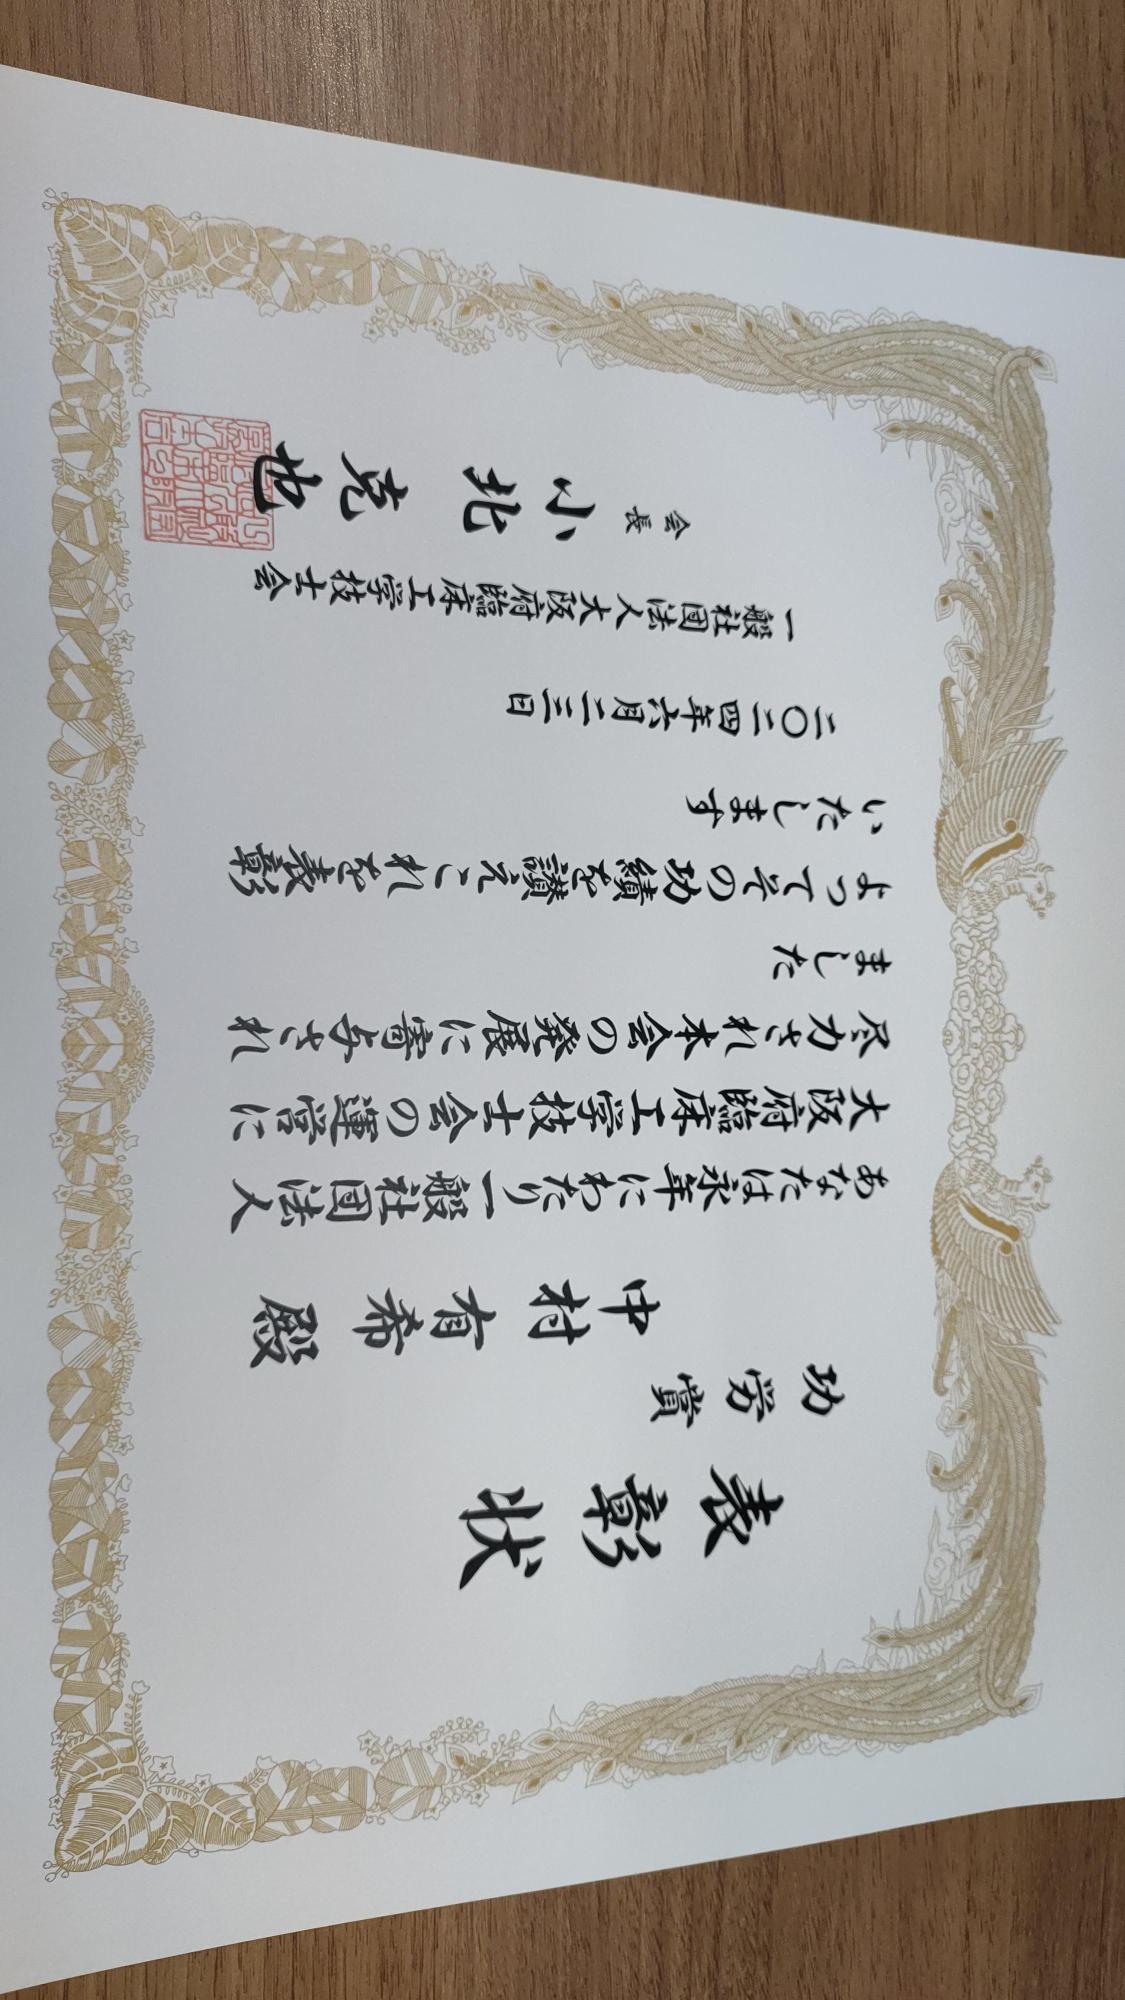 表彰状
功労賞
中村有希殿
あなたは永年にわたり一般社団法人
大阪府臨床工学技士会の運営に
尽力され本会の発展に寄与され
ました
よってその功績を讃えこれを表彰
いたします
二〇二四年六月二三日
一般社団法人大阪府臨床工学技士会
会長 小北克也